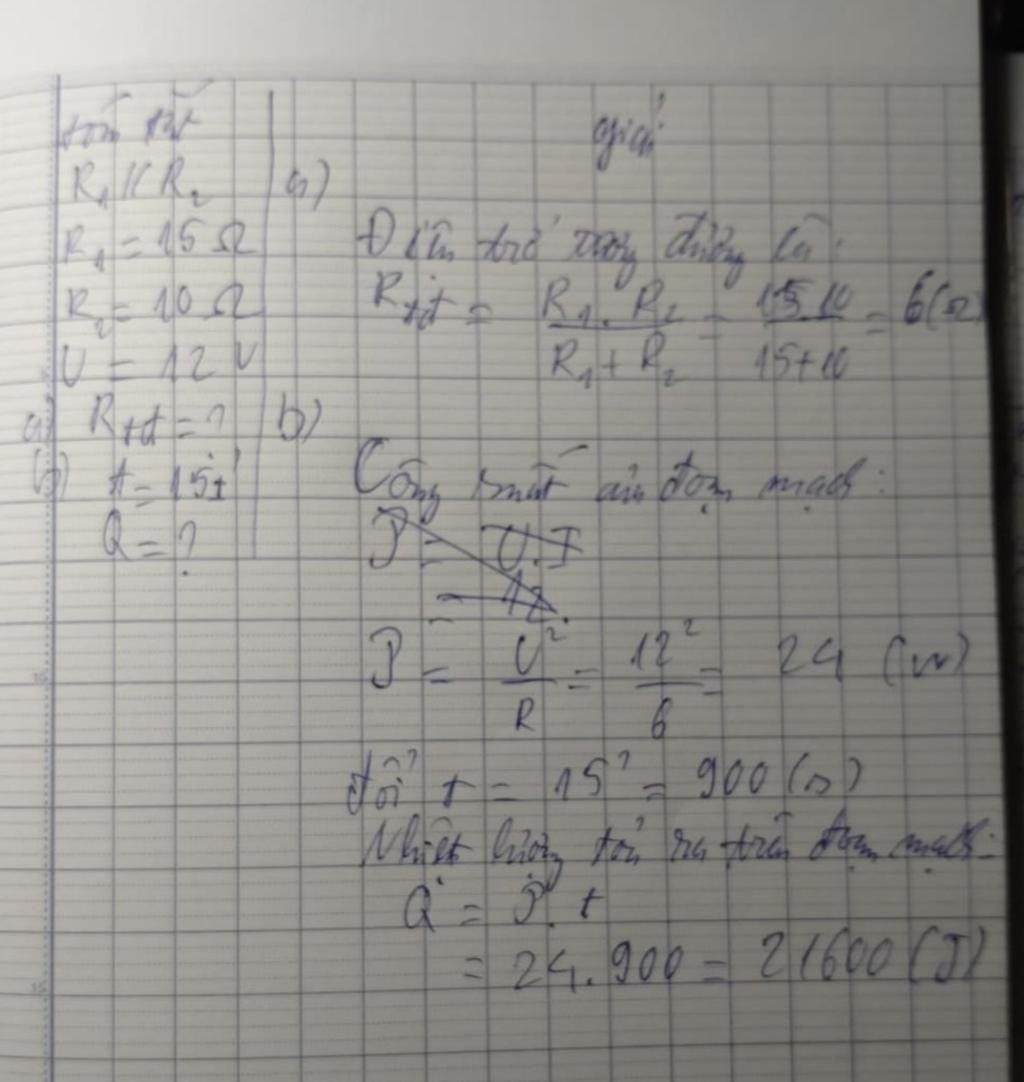 tóm tắt
R₁ // R₂
R₁ = 15 Ω
R₂ = 10 Ω
U = 12 V
a) Rtđ = ?
b) t = 15'
Q = ?
giải
a)
Điện trở tương đương là:
Rtđ = R₁.R₂ / R₁ + R₂ = 15.10 / 15+10 = 6 (Ω)
b)
Công suất của đoạn mạch:
P = U.I
= 12.
P = U² / R = 12² / 6 = 24 (W)
đổi t = 15' = 900 (s)
Nhiệt lượng tỏả ra trên đoạn mạch:
Q = P.t
= 24.900 = 21600 (J)